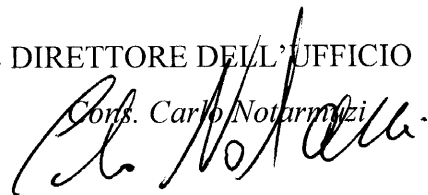 DIRETTORE DELL'UFFICIO
Cons. Carlo Notarmuzi